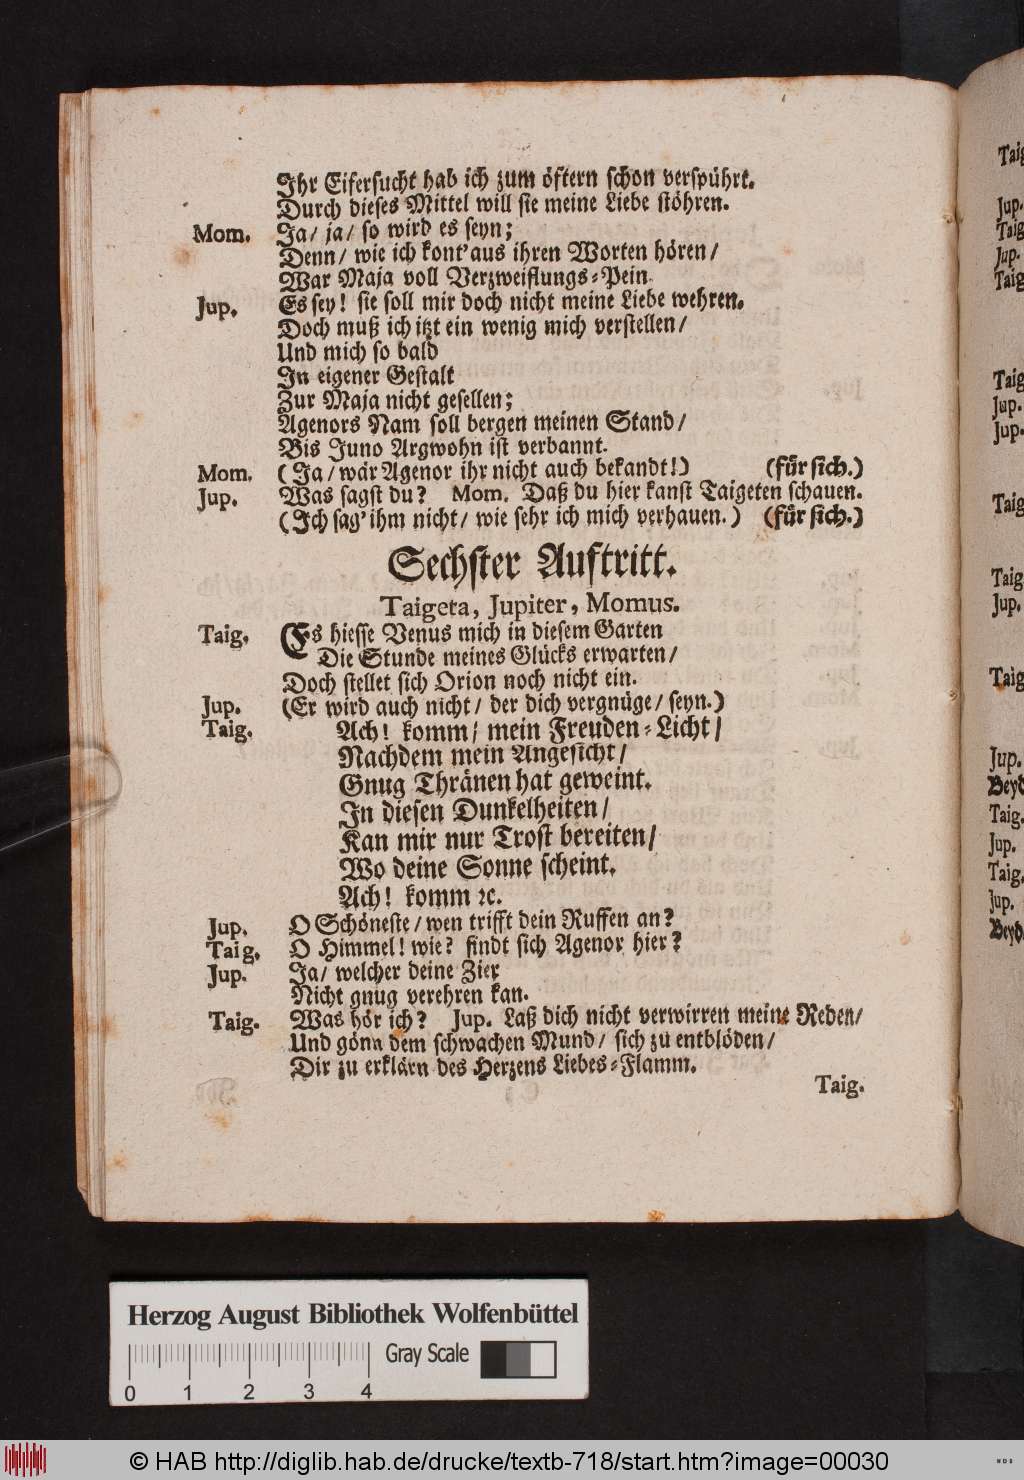 Ihr Eifersucht hab ich zum öftern schon verspührt.
Durch dieses Mittel will sie meine Liebe stöhren.
Mom. Ja/ ja/ so wird es seyn;
Denn/ wie ich kont' aus ihren Worten hören/
War Maja voll Verzweiflungs-Pein.
Jup. Es sey! sie soll mir doch nicht meine Liebe wehren.
Doch muß ich itzt ein wenig mich verstellen/
Und mich so bald
In eigener Gestalt
Zur Maja nicht gesellen;
Agenors Nam soll bergen meinen Stand/
Bis Juno Argwohn ist verbannt.
Mom. (Ja/ wär Agenor ihr nicht auch bekandt!) (für sich.)
Jup. Was sagst du? Mom. Daß du hier kanst Taigeten schauen.
(Ich sag' ihm nicht/ wie sehr ich mich verhauen.) (für sich.)
Sechster Auftritt.
Taigeta, Jupiter, Momus.
Taig. Es hiesse Venus mich in diesem Garten
Die Stunde meines Glücks erwarten/
Doch stellet sich Orion noch nicht ein.
Jup. (Er wird auch nicht/ der dich vergnüge/ seyn.)
Taig. Ach! komm/ mein Freuden-Licht/
Nachdem mein Angesicht/
Gnug Thränen hat geweint.
In diesen Dunkelheiten/
Kan mir nur Trost bereiten/
Wo deine Sonne scheint.
Ach! komm ꝛc.
Jup. O Schöneste/ wen trifft dein Ruffen an?
Taig. O Himmel! wie? findt sich Agenor hier?
Jup. Ja/ welcher deine Zier
Nicht gnug verehren kan.
Taig. Was hör ich? Jup. Laß dich nicht verwirren meine Reden/
Und gönn dem schwachen Mund/ sich zu entblöden/
Dir zu erklärn des Herzens Liebes-Flamm.
Taig.
Taig
Jup.
Taig
Jup.
Taig
Taig
Jup.
Jup.
Taig
Taig
Jup.
Taig
Jup.
Beyd
Taig.
Jup.
Taig.
Jup.
Beyd.
Herzog August Bibliothek Wolfenbüttel
Gray Scale
0 1 2 3 4
© HAB http://diglib.hab.de/drucke/textb-718/start.htm?image=00030